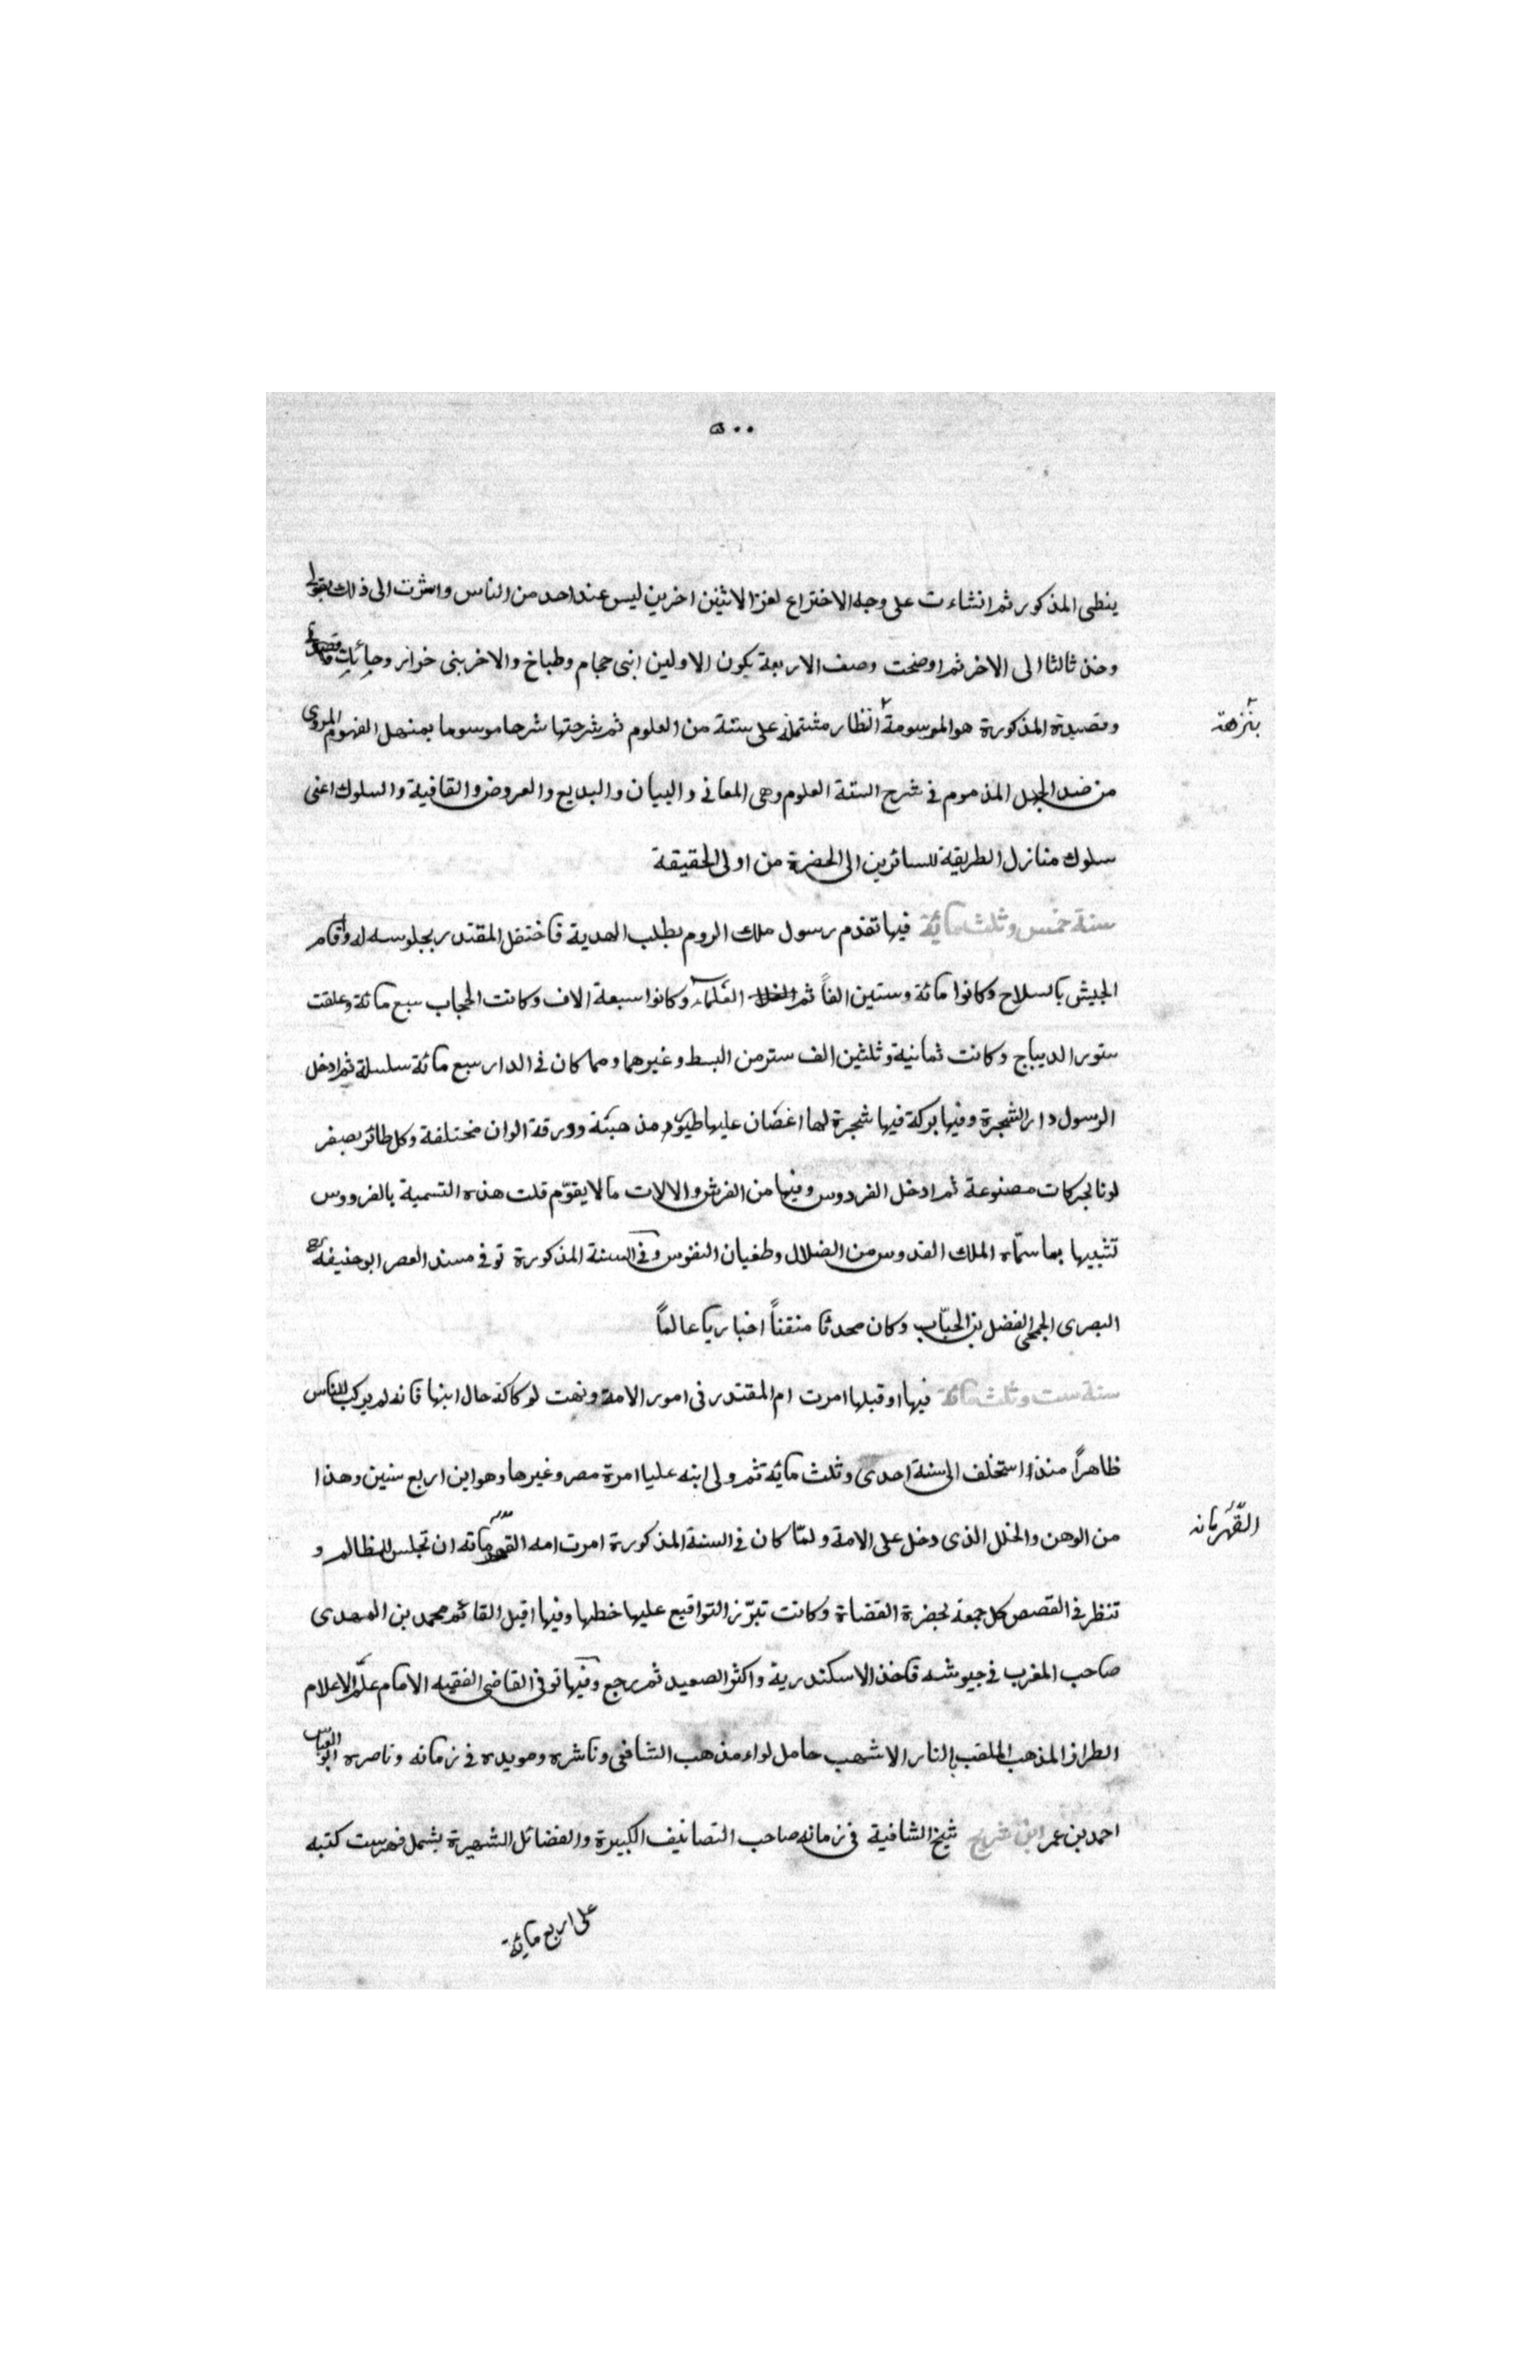 ٥٠٠
ينطى المذكور ثم انشاءت على وجه الاختراع لغزا لاثنين اخرين ليس عند احد من الناس واشرت الى ذلك بقولى
وخذ ثالثا الى الاخر ثم اوضحت وصف الاربعة بكون الاولين ابنى حجام وطباخ والاخر بنى خواز وحائك
وقصيدة المذكورة هو الموسومة انظار مشتملة على ستة من العلوم ثم شرحتها شرحا موسوما بمنهل الفهوم المروى
بنزهة
من ضد الجهل المذموم فى شرح الستة العلوم وهى المعانى والبيان والبديع والعروض والقافية والسلوك اعنى
سلوك منازل الطريقة للسائرين الى الحضرة من اولى الحقيقة
سنة خمس وثلث مائة فيها تقدم رسول ملك الروم بطلب الهدية فاحتفل المقتدر بجلوسه له واقام
الجيش بالسلاح وكانوا مائة وستين الفاً ثم الغلمان وكانوا سبعة الاف وكانت الحجاب سبع مائة وعلقت
ستور الديباج وكانت ثمانية وثلثين الف ستر من البسط وغيرهما ومما كان فى الدار سبع مائة سلسلة ثم ادخل
الرسول دار الشجرة وفيها بركة فيها شجرة لها اغصان عليها طيور مذهبة وورقة الوان مختلفة وكل طائر يصفر
لونا بحركات مصنوعة ثم ادخل الفردوس وفيها من الفرش والالات ما لا يقوّم قلت هذه التسمية بالفردوس
تشبيها بما سمّاه الملك القدوس من الضلال وطغيان النفوس وفى السنة المذكورة توفى مسند العصر ابو خليفة
البصرى الجمحى الفضل بن الحبّاب وكان محدثا متقناً اخباريا عالماً
سنة ست وثلث مائة فيها او قبلها امرت ام المقتدر فى امور الامة ونهت لركاكة حال ابنها فانه لم يركب للناس
ظاهراً منذ استخلف الى سنة احدى وثلث مائة ثم ولى ابنه عليا امرة مصر وغيرها وهو ابن اربع سنين وهذا
من الوهن والخلل الذى دخل على الامة ولمّا كان فى السنة المذكورة امرت امه القهرمانه ان تجلس للمظالم و
القهرمانه
تنظر فى القصص كل جمعة بحضرة القضاة وكانت تبرّز التواقيع عليها خطها وفيها اقبل القائم محمد بن المهدى
صاحب المغرب فى جيوشه فاخذ الاسكندرية واكثر الصعيد ثم رجع وفيها توفى القاضى الفقيه الامام علم الاعلام
الطراز المذهب الملقب بالنار الاشهب حامل لواء مذهب الشافعى وناشره ومويده فى زمانه وناصره ابو العباس
احمد بن عمر ابن شريح شيخ الشافعية فى زمانه صاحب التصانيف الكبيرة والفضائل الشهيرة يشمل فهرست كتبه
على اربع مائة